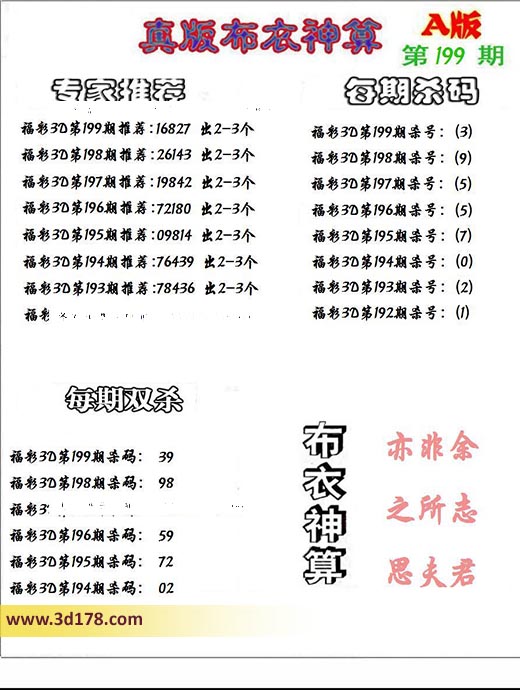 真版布衣神算
A版
第199期
专家推荐
福彩3D第199期推荐:16827 出2-3个
福彩3D第198期推荐:26143 出2-3个
福彩3D第197期推荐:19842 出2-3个
福彩3D第196期推荐:72180 出2-3个
福彩3D第195期推荐:09814 出2-3个
福彩3D第194期推荐:76439 出2-3个
福彩3D第193期推荐:78436 出2-3个
福彩
每期杀码
福彩3D第199期杀号: (3)
福彩3D第198期杀号: (9)
福彩3D第197期杀号: (5)
福彩3D第196期杀号: (5)
福彩3D第195期杀号: (7)
福彩3D第194期杀号: (0)
福彩3D第193期杀号: (2)
福彩3D第192期杀号: (1)
每期双杀
福彩3D第199期杀码: 39
福彩3D第198期杀码: 98
福彩
福彩3D第196期杀码: 59
福彩3D第195期杀码: 72
福彩3D第194期杀码: 02
布衣神算
亦非余
之所志
思夫君
www.3d178.com